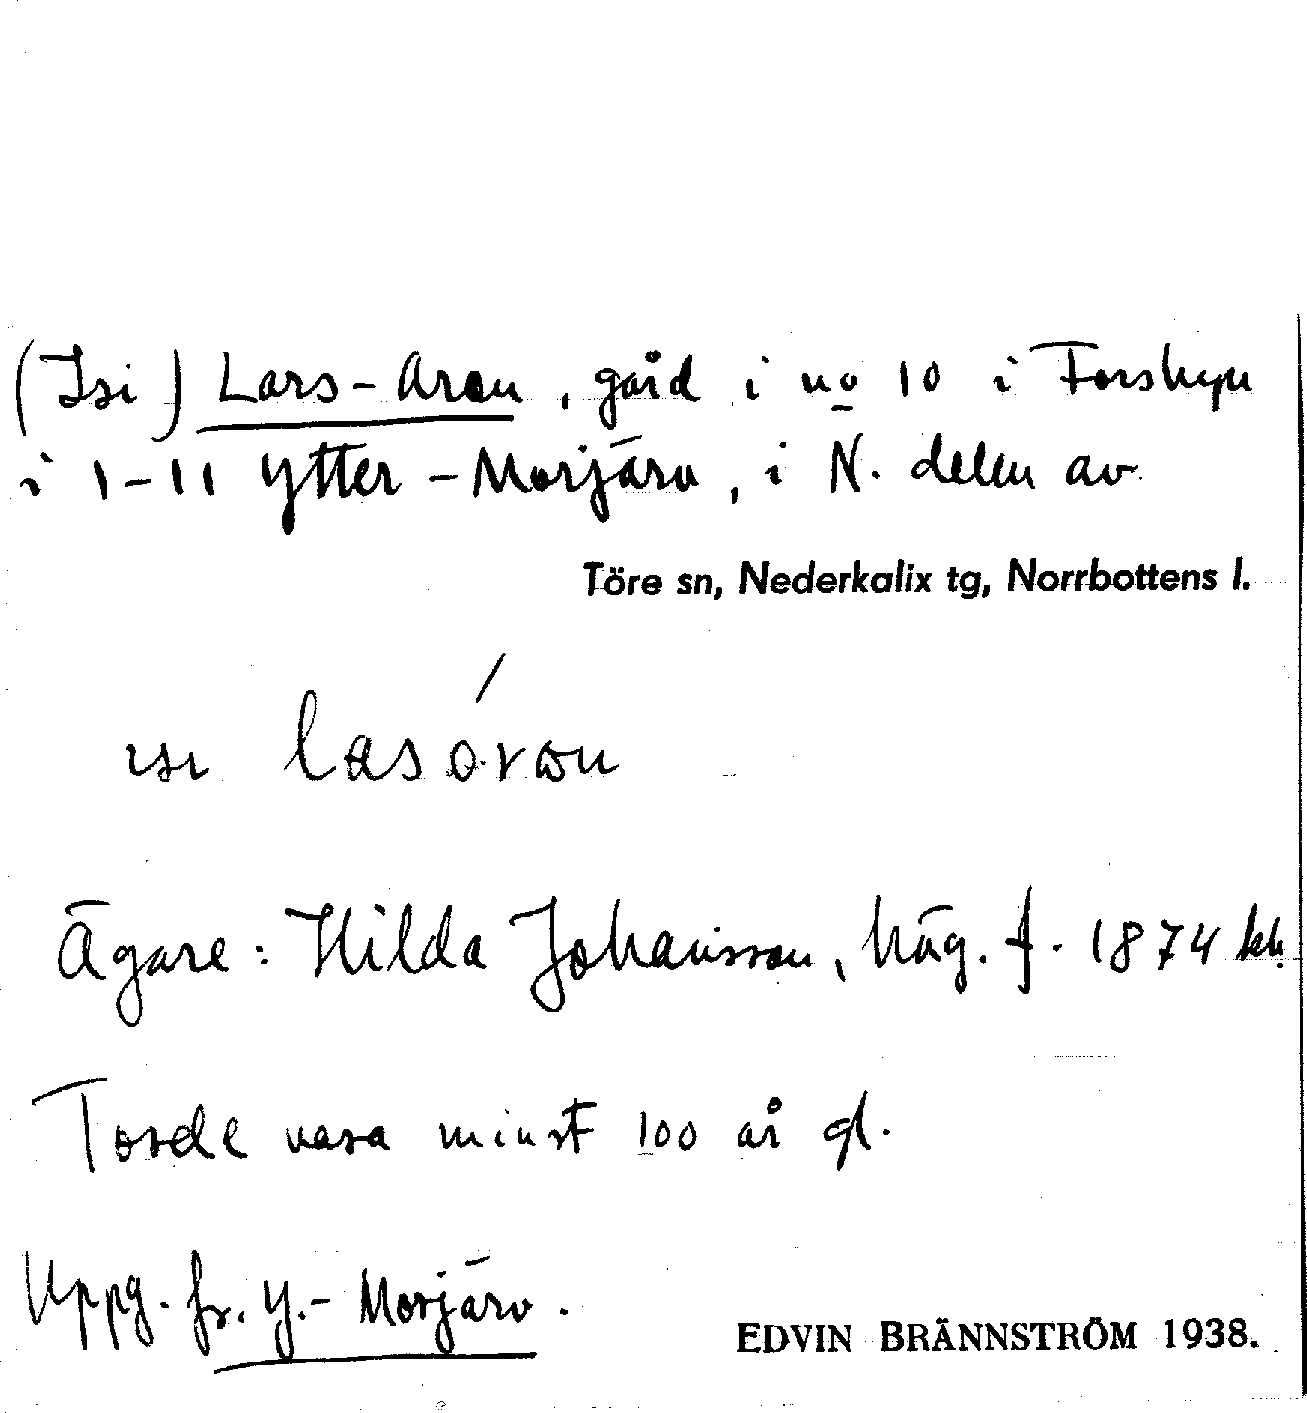 (Isi) Lars-Aron, gård i no 10 i Forshyn
i 1-11 Ytter-Morjärv, i N. delen av
Töre sn, Nederkalix tg, Norrbottens l.
ısı lasóron
Ägare: Hilda Johansson, häg. f. 1874 kh.
Torde vara minst 100 år gl.
Uppg. fr. Y.-Morjärv.
EDVIN BRÄNNSTRÖM 1938.